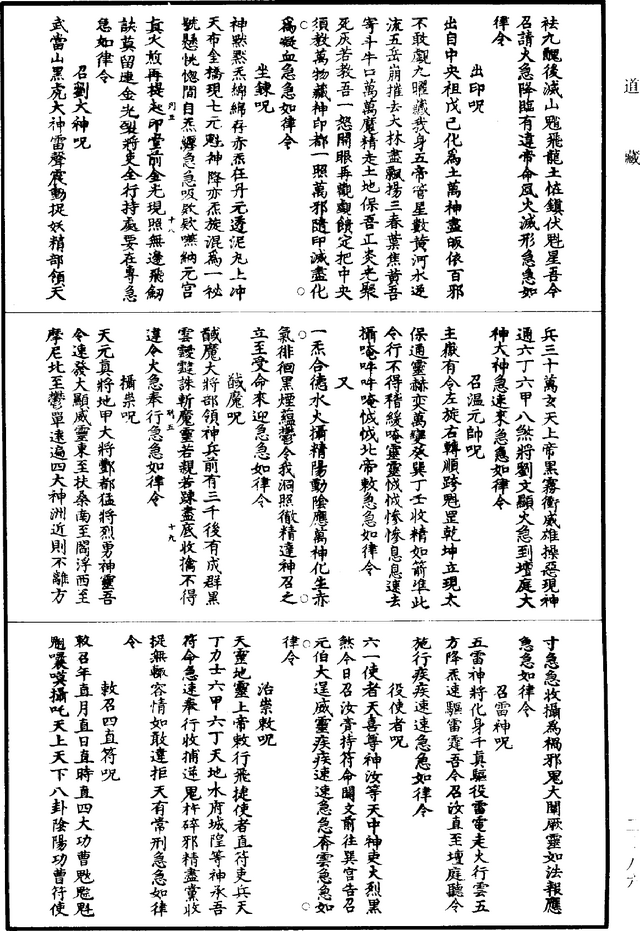 道藏
祛九醜後滅山魈飛龍土伍鎮伏魁星吾今
召請火急降臨有違帝命風火滅形急急如
律令
出印呪
出自中央祖戊己化為土萬神盡皈依百邪
不敢覷九曜藏我身五帝管星數黃河水逆
流五岳崩摧去大林盡飄揚三春葉焦黃吾
寄斗牛口萬萬魔精走土地保吾正炎光聚
死灰若教吾一怒開眼再觀覷饒定把中央
須教萬物藏神印都一照萬邪隨印滅盡化
為凝血急急如律令
坐鍊呪
神黙黙炁綿綿存赤炁在丹元透泥丸上冲
天布全橋現七元魁神降亦炁旋混為一祕
號懸恍惚間自炁纏急急吸欻欻嚥納元宫
真火煎再提起印堂前金光現照無邊飛劒
訣莫留連金光製將吏全行持處要在專急
急如律令
召劉大神呪
武當山黑虎大神雷聲震動捉妖精部領天
兵三十萬玄天上帝黑霧衝威雄操惡現神
通六丁六甲八煞將劉文顯火急到壇庭大
神大神急速來急急如律令
召溫元帥呪
主嶽有令左旋右轉順跨魁罡乾坤立現太
保通靈赫奕萬變癸巽丁壬收精如箭準此
令行不得稽緩唵靈靈㤕㤕慘慘息息速去
攝唵吽吽唵㤕㤕北帝敕急急如律令
又
一炁合德水火攝精陽動陰應萬神化生赤
氣徘徊黑煙蘊鬱令我洞照徹精達神召之
立至受命來迎急急如律令
馘魔呪
馘魔大將部領神兵前有三千後有成群黑
雲靉靆誅斬魔靈若親若踈盡底收擒不得
違令火急奉行急急如律令
攝祟呪
天元真將地甲大將酆都猛將烈勇神靈吾
令速發大顯威靈東至扶桑南至閻浮西至
摩尼北至鬱單遠遍四大神洲近則不離方
寸急急收攝為禍邪鬼大闡厥靈如法報應
急急如律令
召雷神呪
五雷神將化身千真驅役雷電走火行雲五
方降炁速驅雷霆吾令召汝直至壇庭聽令
施行疾疾速速急急如律令
役使者呪
六一使者天喜尊神汝等天中神吏大烈黑
煞今日召汝賫持符命關文前往巽宫告召
元伯大逞威靈疾疾速速急急奔雲急急如
律令
治祟敕呪
天靈地靈上帝敕行飛捷使者直符吏兵天
丁力士六甲六丁天地水府城隍等神承吾
符命急速奉行收捕逆鬼杵碎邪精盡黨收
捉無輒容情如敢違拒天有常刑急急如律
令
敕召四直符呪
敕召年直月直日直時直四大功曹魁魁魁
攝吒天上天下八卦陰陽功曹符使